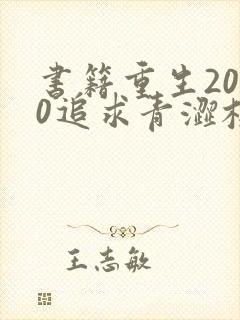 书籍重生20
0追求青涩校
王志敏